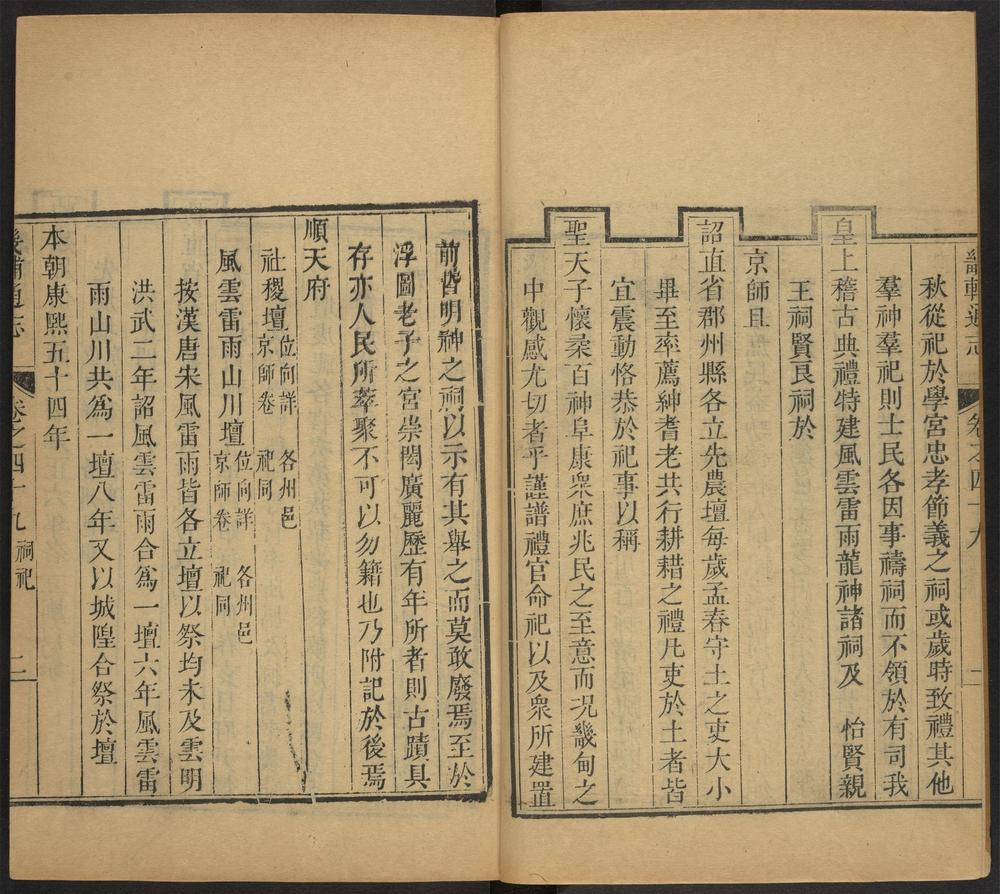 畿輔通志 卷之四十九 一
秋從祀於學宮忠孝節義之祠或歲時致禮其他
羣神羣祀則士民各因事禱祠而不領於有司我
皇上稽古典禮特建風雲雷雨龍神諸祠及 怡賢親
王祠賢良祠於
京師且
詔直省郡州縣各立先農壇每歲孟春守土之吏大小
畢至率薦紳耆老共行耕耤之禮凡吏於土者皆
宜震動恪恭於祀事以稱
聖天子懷柔百神阜康衆庶兆民之至意而况畿甸之
中觀感尤切者乎謹譜禮官命祀以及衆所建置
前哲明神之祠以示有其舉之而莫敢廢焉至於
浮圖老子之宮崇閎廣麗歷有年所者則古蹟具
存亦人民所萃聚不可以勿籍也乃附記於後焉
順天府
社稷壇 位向詳京師卷 各州邑祀同
風雲雷雨山川壇 位向詳京師卷 各州邑祀同
按漢唐宋風雷雨皆各立壇以祭均未及雲明
洪武二年詔風雲雷雨合爲一壇六年風雲雷
雨山川共爲一壇八年又以城隍合祭於壇
本朝康熙五十四年
畿輔通志 卷之四十九 祠祀 二